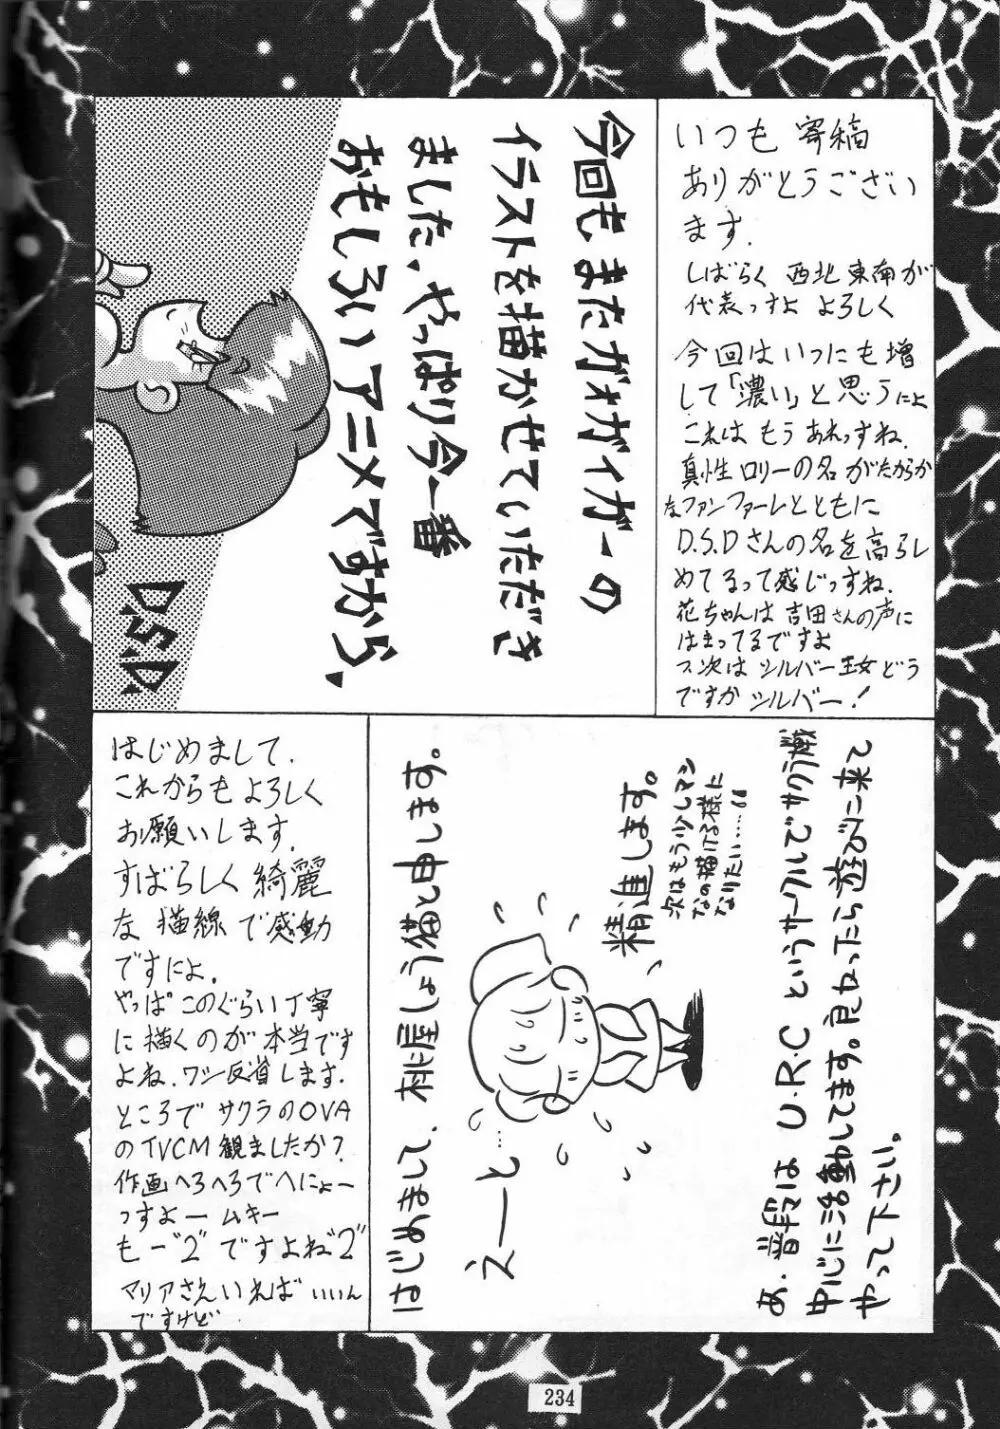 今回もまたガオガイガーの
イラストを描かせていただき
ました、やっぱり今一番
おもしろいアニメですから、
D.S.D
いつも 寄稿
ありがとうござい
ます.
しばらく 西北東南が
代表っすよ よろしく
今回はいつにも増
して「濃い」と思うによ
これは もう あれっすね.
真性 ロリーの名 がたからか
なファンファーレとともに
D.S.Dさんの名を高らし
めてるって感じっすね.
花ちゃんは 吉田さんの声に
はまってるですよ
次は シルバー王女 どう
ですか シルバー!
はじめまして.
これからも よろしく
お願いします.
すばらしく 綺麗
な 描線で感動
ですによ.
やっぱ このぐらい 丁寧
に描くのが 本当です
よね. ワシ反省します.
ところで サクラのOVA
のTVCM 観ましたか?
作画へろへろでへにょー
っすよー ムキー
もー"2"ですよね"2"
マリアさえいれば いいん
ですけど
はじめまして、桃屋しょう猫と申します。
えーと…
精進します。
次はもう少しマシ
なの描ける様に
なりたい……
あ、普段は U・R・C というサークルでサクラ戦
中心に活動してます。良かったら遊びに来て
やって下さい。
234